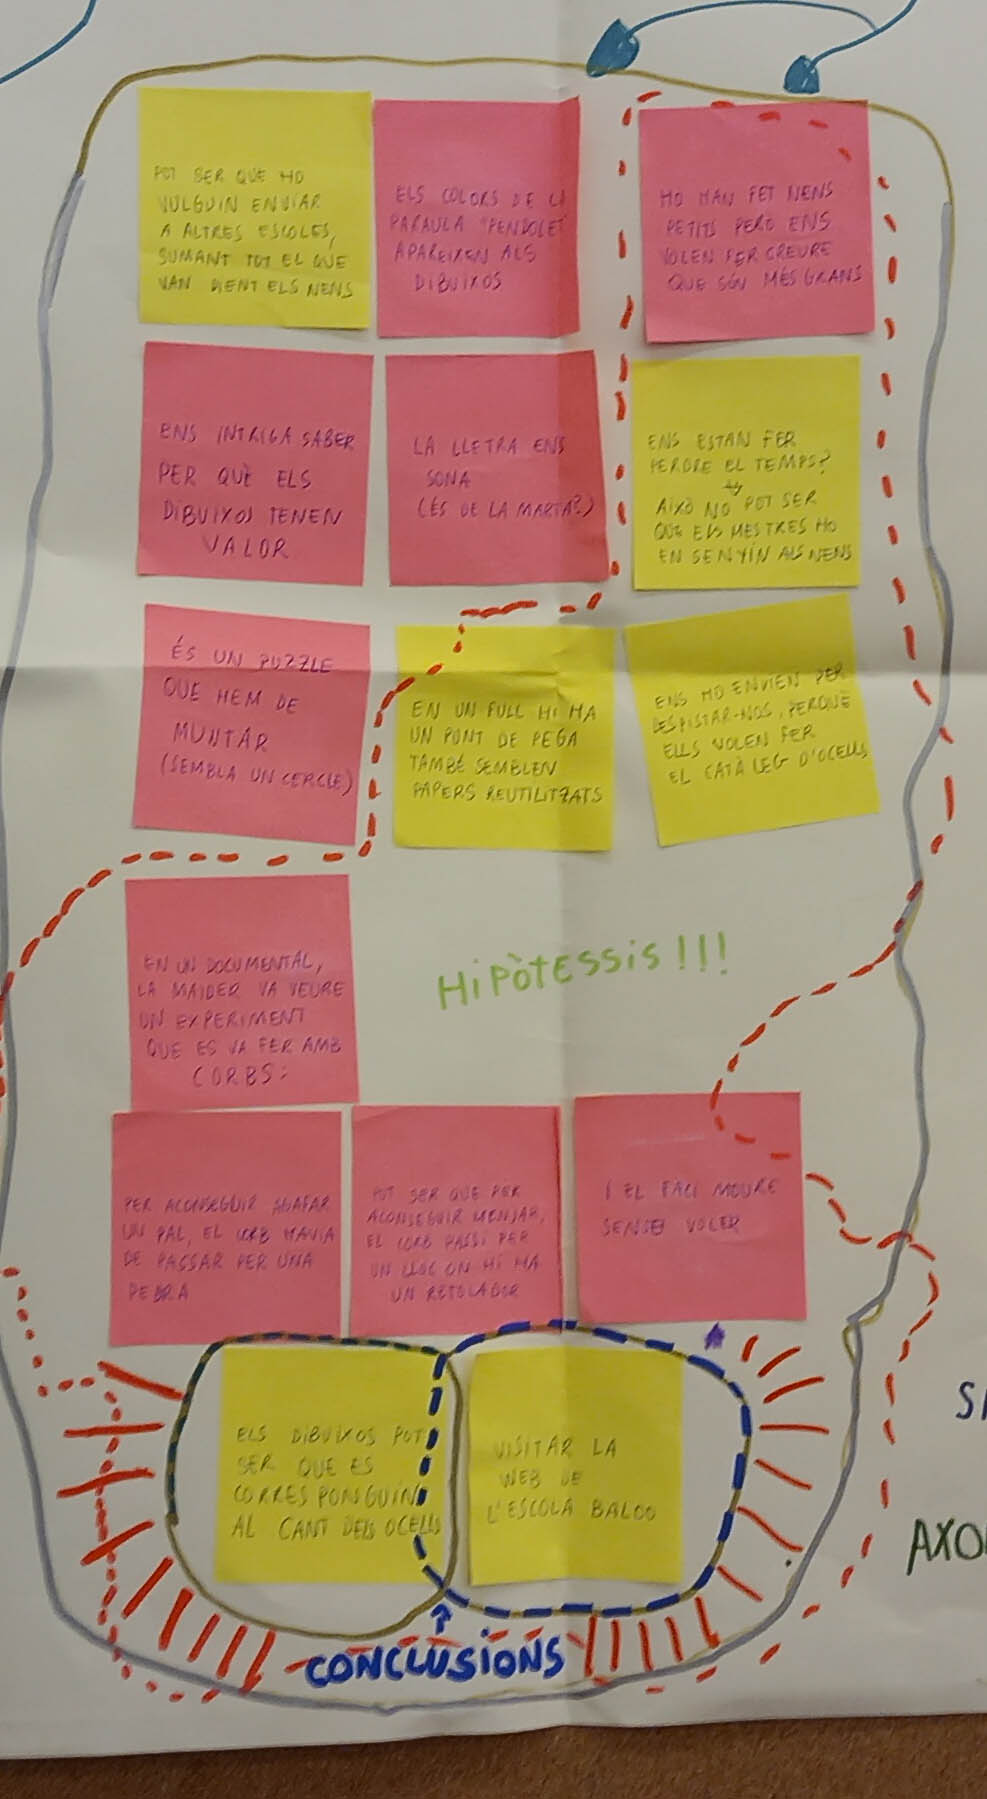 POT SER QUE HO
VULGUIN ENVIAR
A ALTRES ESCOLES,
SUMANT TOT EL QUE
VAN DIENT ELS NENS
ELS COLORS DE LA
PARAULA "PENDOLET"
APAREIXEN ALS
DIBUIXOS
HO HAN FET NENS
PETITS PERÒ ENS
VOLEN FER CREURE
QUE SÓN MÉS GRANS
ENS INTRIGA SABER
PER QUÈ ELS
DIBUIXOS TENEN
VALOR
LA LLETRA ENS
SONA
(ÉS DE LA MARTA?)
ENS ESTAN FER
PERDRE EL TEMPS?
AIXÒ NO POT SER
QUE ELS MESTRES HO
ENSENYIN ALS NENS
ÉS UN PUZZLE
QUE HEM DE
MUNTAR
(SEMBLA UN CERCLE)
EN UN FULL HI HA
UN PUNT DE PEGA
TAMBÉ SEMBLEN
PAPERS REUTILITZATS
ENS HO ENVIEN PER
DESPISTAR-NOS, PERQUÈ
ELLS VOLEN FER
EL CATÀLEG D'OCELLS
EN UN DOCUMENTAL,
LA MAIDER VA VEURE
UN EXPERIMENT
QUE ES VA FER AMB
CORBS:
HIPÒTESSIS!!!
PER ACONSEGUIR AGAFAR
UN PAL, EL CORB HAVIA
DE PASSAR PER UNA
PEDRA
POT SER QUE PER
ACONSEGUIR MENJAR,
EL CORB PASSI PER
UN LLOC ON HI HA
UN RETOLADOR
I EL FACI MOURE
SENSE VOLER
ELS DIBUIXOS POT
SER QUE ES
CORRESPONGUIN
AL CANT DELS OCELLS
VISITAR LA
WEB DE
L'ESCOLA BALOO
CONCLUSIONS